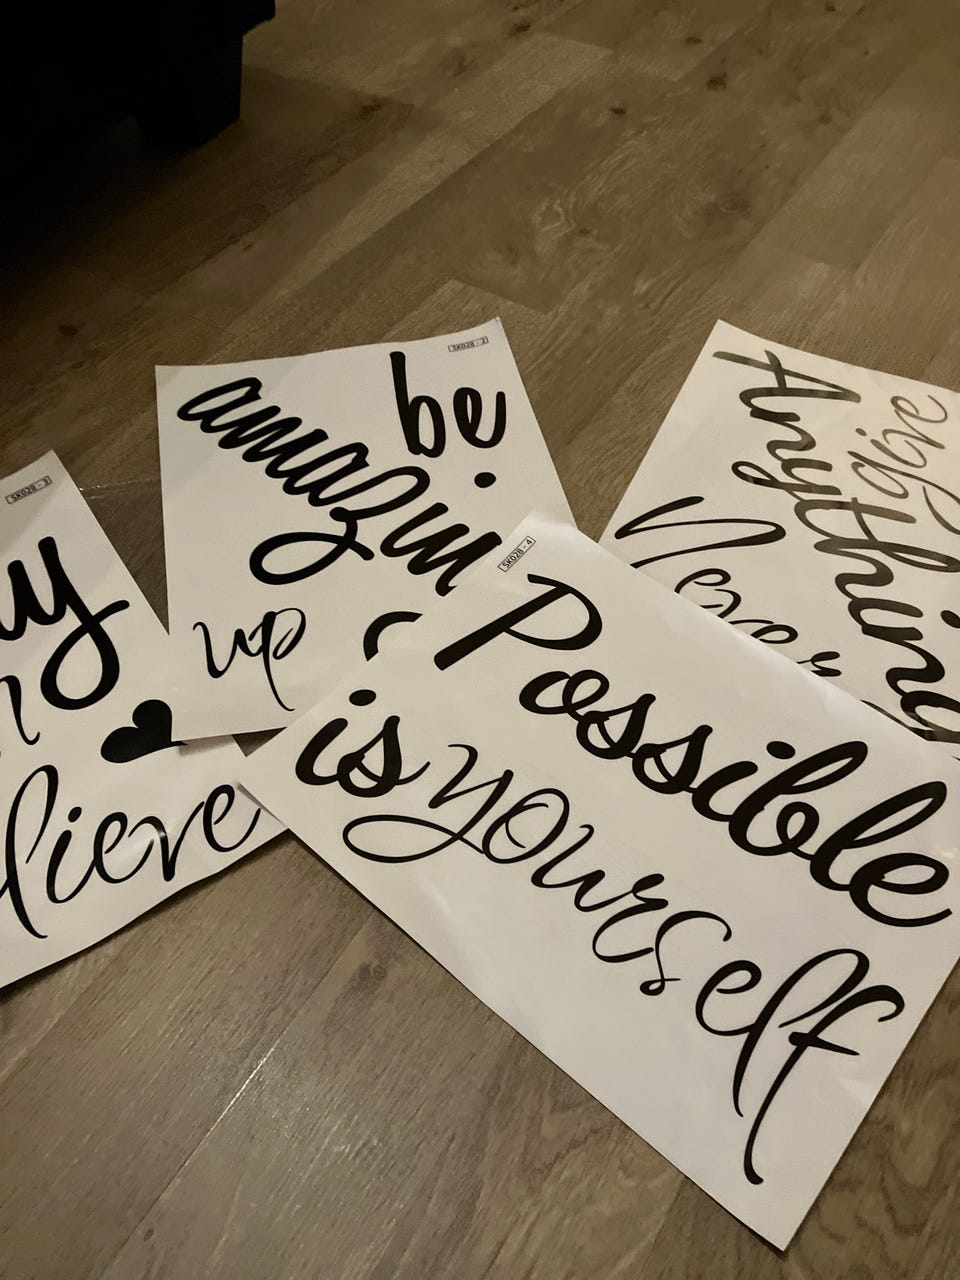 SK028 - 3
lieve
SK028 - 2
be
amazin
up
SK028 - 4
Possible
is yourself
give
Anything
Never